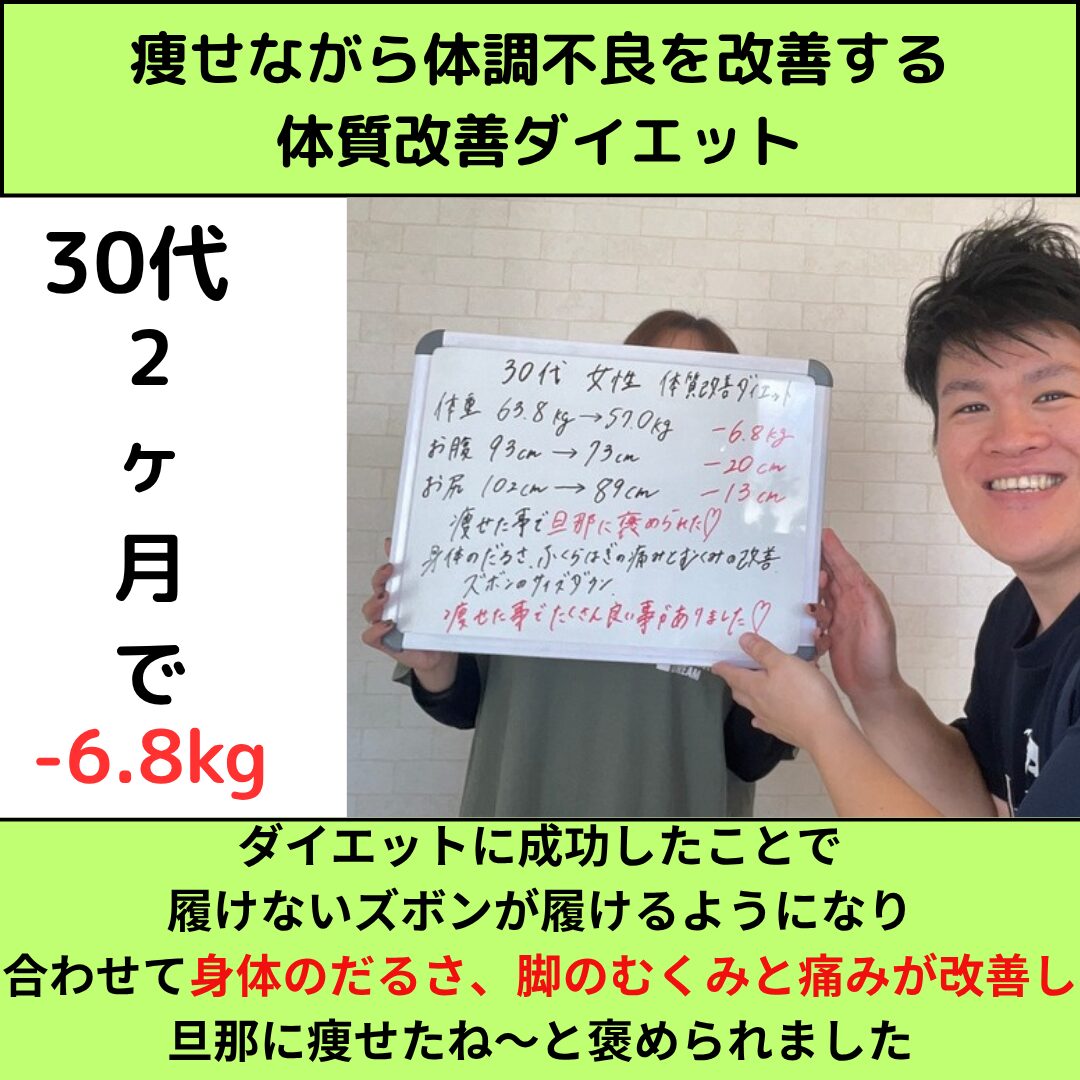 痩せながら体調不良を改善する
体質改善ダイエット
30代
2ヶ月で
-6.8kg
30代 女性 体質改善ダイエット
体重 63.8kg→57.0kg -6.8kg
お腹 93cm→73cm -20cm
お尻 102cm→89cm -13cm
痩せた事で旦那に褒められた♡
身体のだるさ、ふくらはぎの痛みとむくみの改善
ズボンのサイズダウン、
痩せた事でたくさん良い事がありました♡
DREAM
ダイエットに成功したことで
履けないズボンが履けるようになり
合わせて身体のだるさ、脚のむくみと痛みが改善し
旦那に痩せたね〜と褒められました